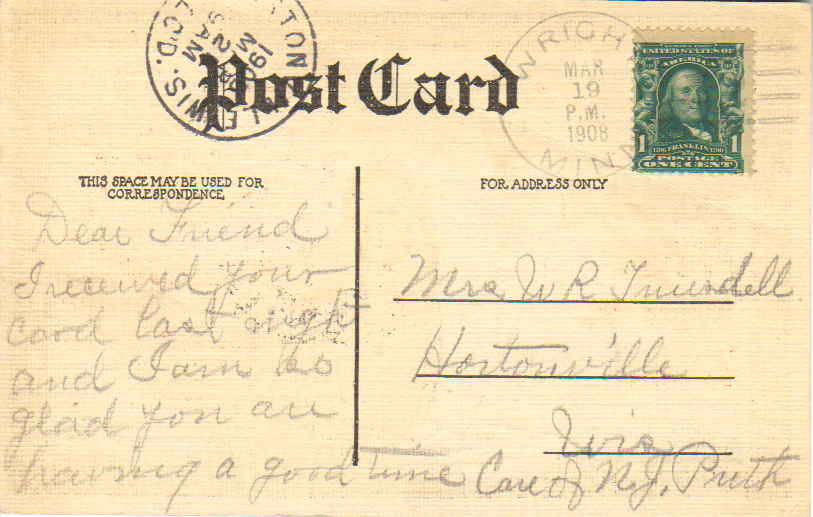 TON
MAR 2
AM
1908
WIS.
REC'D.
Post Card
WRIGHT
MAR
19
P.M.
1908
MINN
UNITED STATES OF
AMERICA
1 FRANKLIN 1
POSTAGE
ONE CENT
THIS SPACE MAY BE USED FOR
CORRESPONDENCE
FOR ADDRESS ONLY
Dear Friend
I received your
card last night
and I am so
glad you are
having a good time
Mrs W R
Hortonville
Wis
Care of N.J.